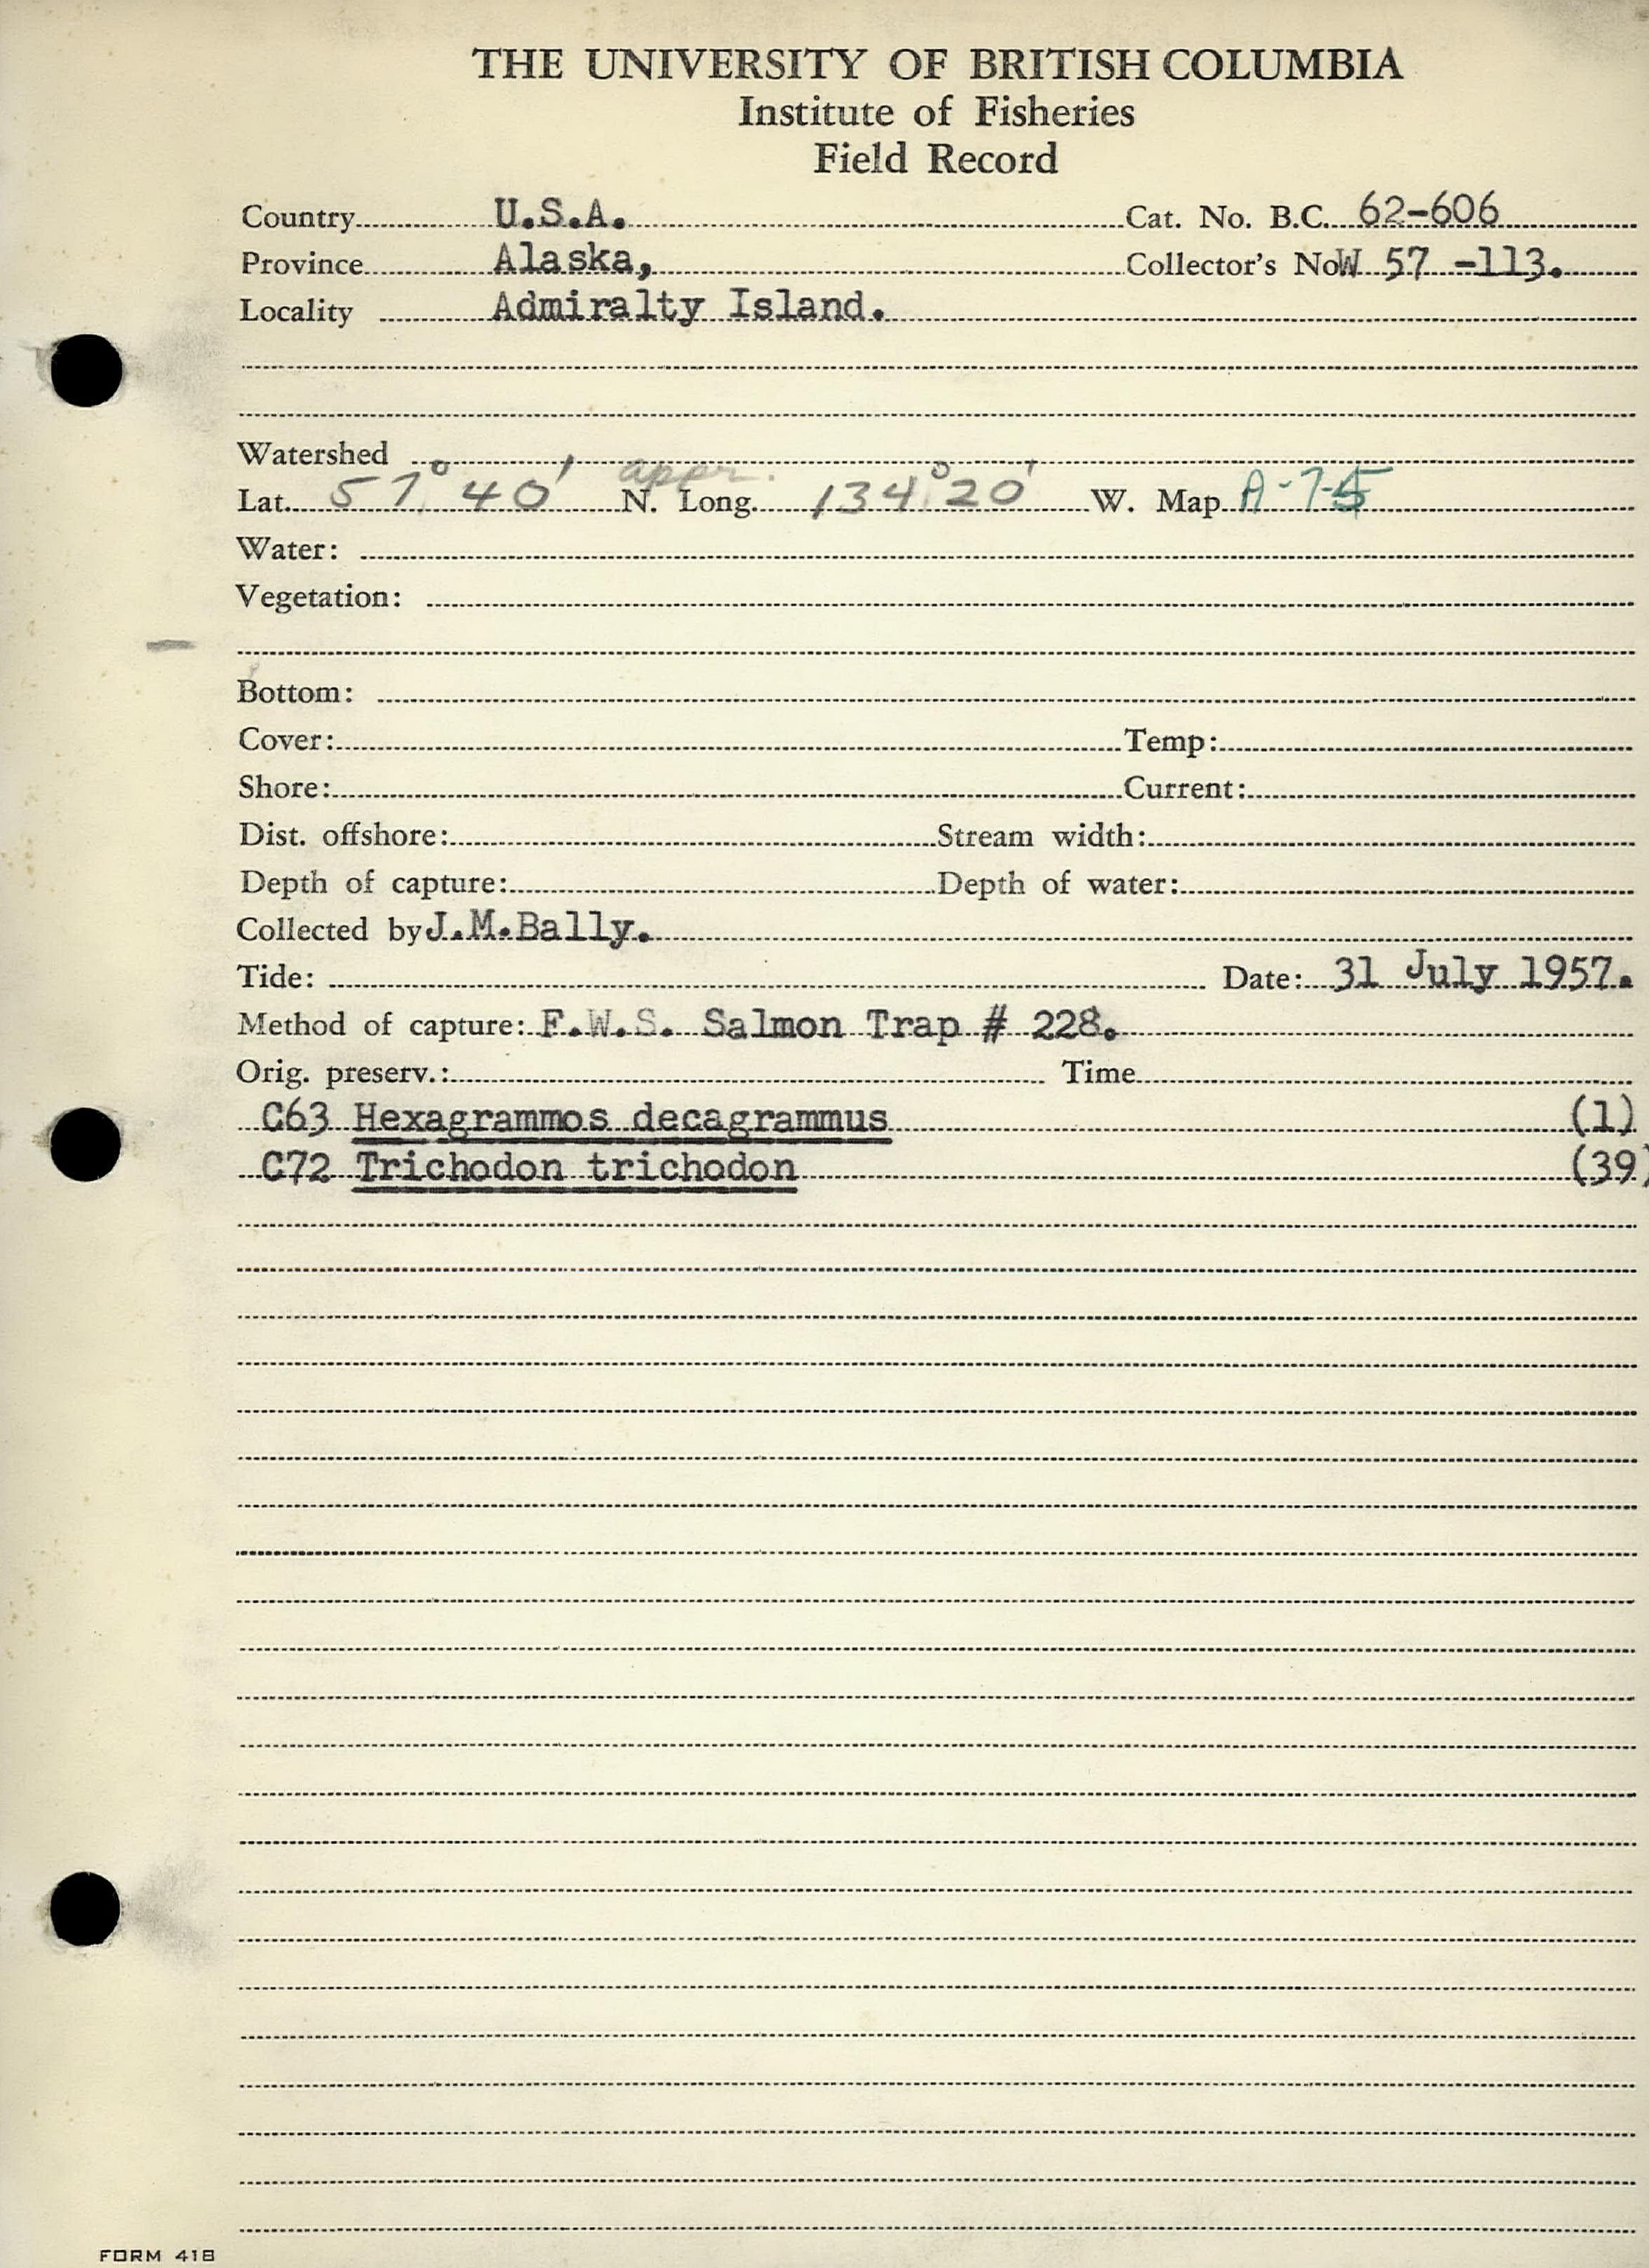 THE UNIVERSITY OF BRITISH COLUMBIA
Institute of Fisheries
Field Record
Country U.S.A. Cat. No. B.C. 62-606
Province Alaska, Collector's No W 57 -113.
Locality Admiralty Island.
Watershed
appr.
Lat. 57° 40' N. Long. 134° 20' W. Map A-7-5
Water:
Vegetation:
Bottom:
Cover: Temp:
Shore: Current:
Dist. offshore: Stream width:
Depth of capture: Depth of water:
Collected by J.M.Bally.
Tide: Date: 31 July 1957.
Method of capture: F.W.S. Salmon Trap # 228.
Orig. preserv.: Time
C63 Hexagrammos decagrammus (1)
C72 Trichodon trichodon (39)
FORM 41B